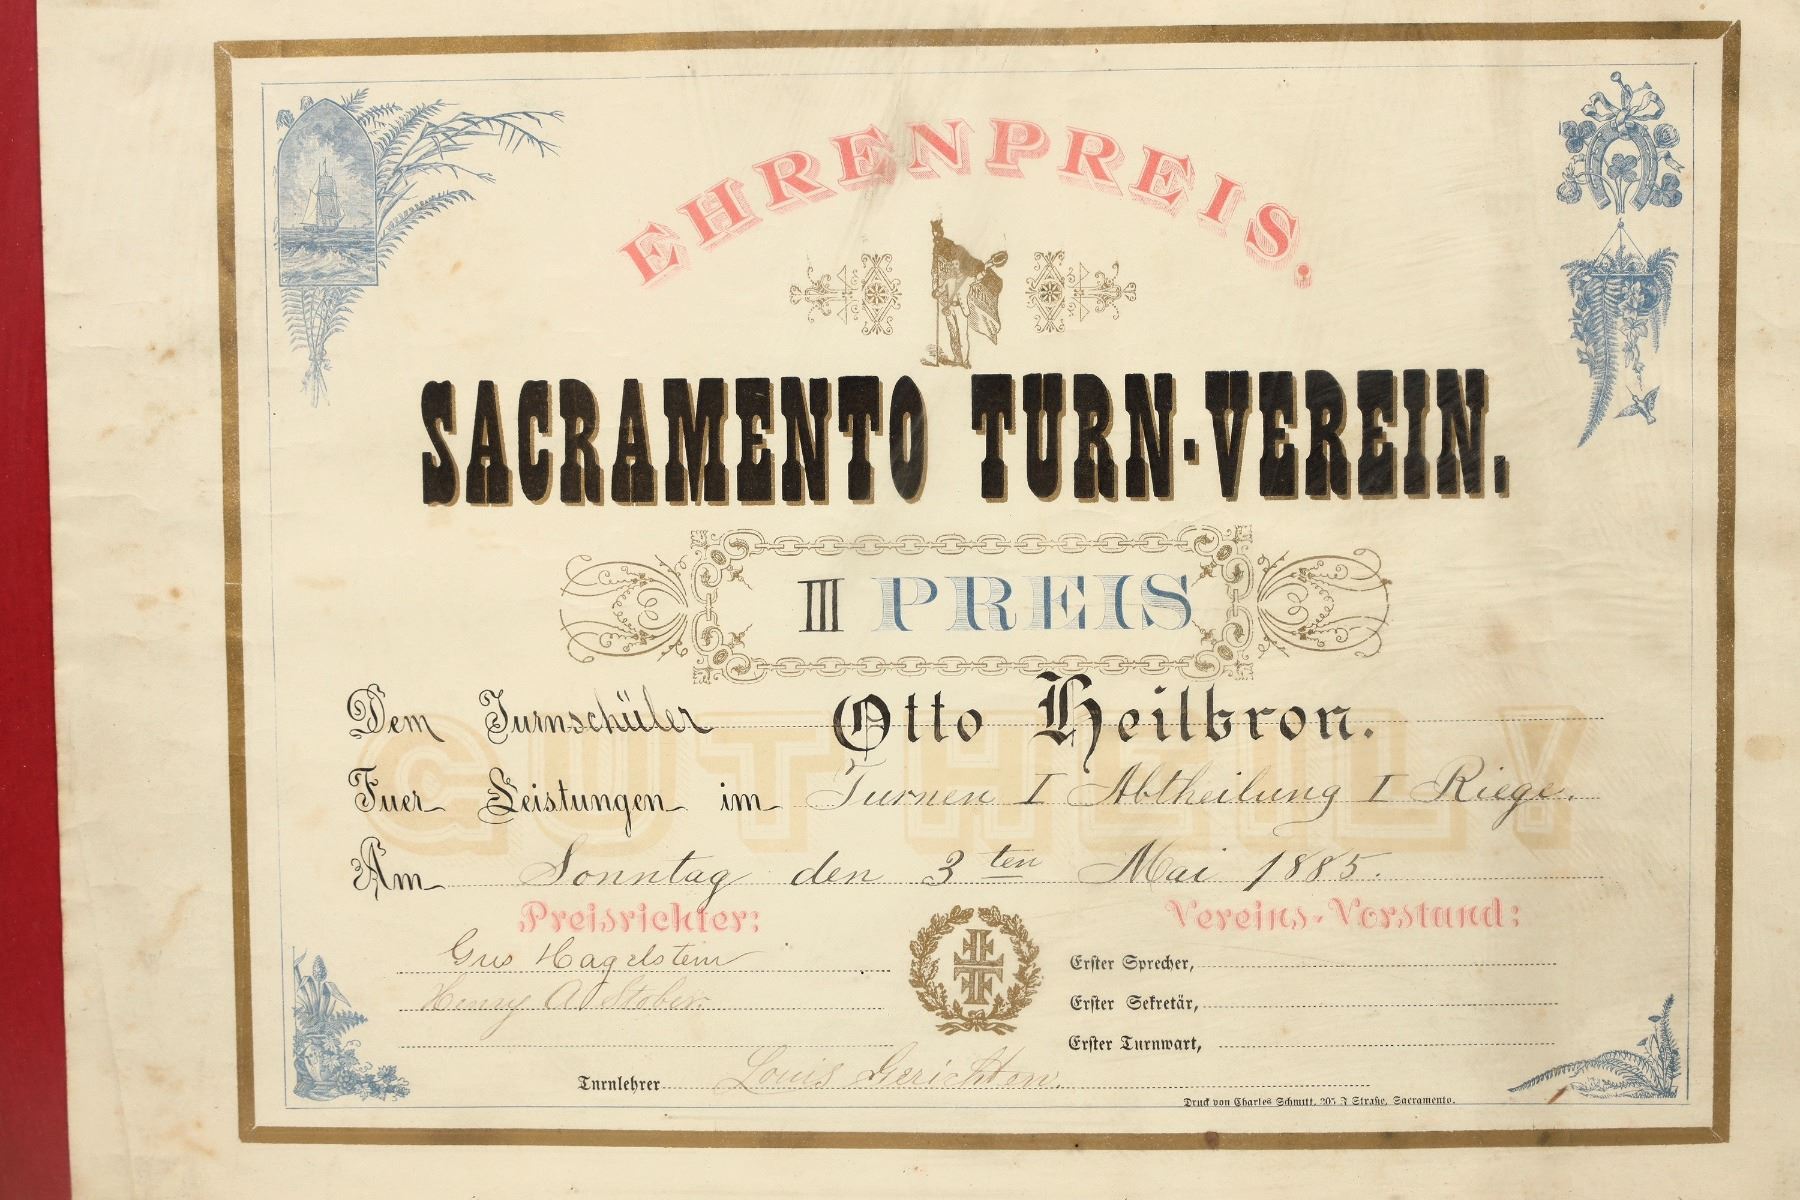 EHRENPREIS.
SACRAMENTO TURN-VEREIN.
III PREIS
GUT HEIL!
Dem Turnschüler Otto Heilbron.
Fuer Leistungen im Turnen I Abtheilung I Riege.
Am Sonntag den 3ten Mai 1885.
Preisrichter:
Gus Hagelstein
Henry A. Stober.
Vereins-Vorstand:
Erster Sprecher,
Erster Sekretär,
Erster Turnwart,
Turnlehrer Louis Gerichten.
Druck von Charles Schmitt, 205 J Straße, Sacramento.